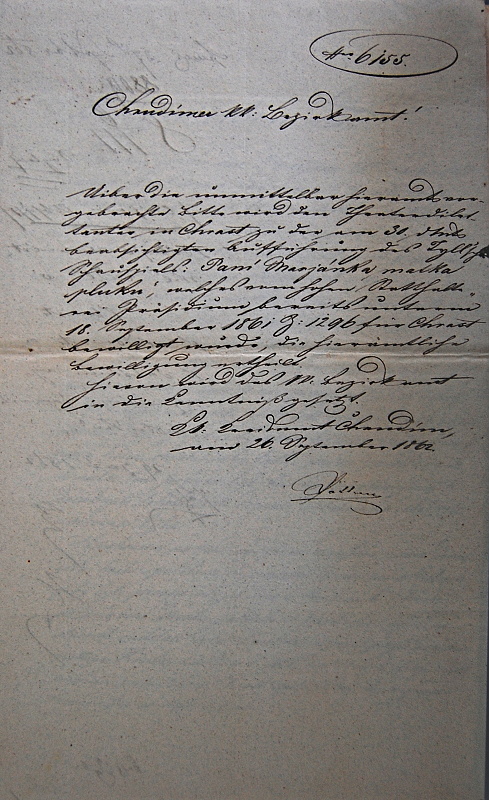 Nro 6155.
Chrudimer kk: Bezirksamt!
Ueber die unmittelbar hieramts vor-
gebrachte Bitte wird den Theaterdilet-
tanten in Chrast zu der am 30. d Mts
beabsichtigten Aufführung des Tyl'schen
Schauspiels: "Paní Marjánka matka
pluku", welches vom hohen Statthalte-
rei Präsidium bereits unterm
18. September 1861 Z: 1296 für Chrast
bewilligt wurde, die hierämtliche
Bewilligung ertheilt.
Hievon wird das kk. Bezirksamt
in die Kenntniß gesetzt.
Kk. Kreisamt Chrudim,
am 26. September 1862